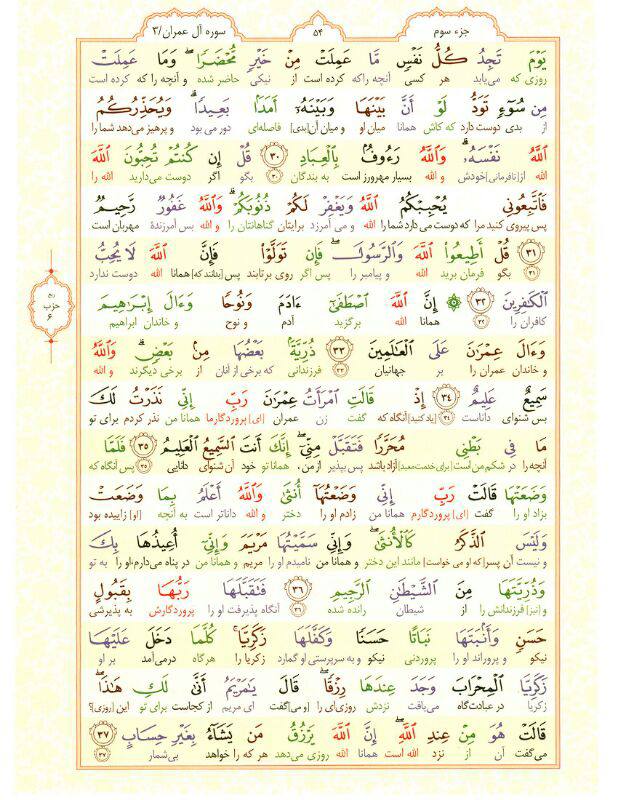 جزء سوم
۵۴
سوره آل عمران/۳
يَوْمَ تَجِدُ كُلُّ نَفْسٍ مَّا عَمِلَتْ مِنْ خَيْرٍ مُّحْضَرًا وَمَا عَمِلَتْ
روزی که می‌یابد هر کسی آنچه راکه کرده است از نیکی حاضر شده و آنچه را که کرده است
مِن سُوٓءٍ تَوَدُّ لَوْ أَنَّ بَيْنَهَا وَبَيْنَهُۥٓ أَمَدًۢا بَعِيدًا ۗ وَيُحَذِّرُكُمُ
از بدی دوست دارد که کاش همانا میان او و میان آن[بدی] فاصله‌ای دور می بود و پرهیز می‌دهد شما را
ٱللَّهُ نَفْسَهُۥ ۗ وَٱللَّهُ رَءُوفٌۢ بِٱلْعِبَادِ ۳۰ قُلْ إِن كُنتُمْ تُحِبُّونَ ٱللَّهَ
الله از[نافرمانی]خودش و الله بسیار مهرورز است به بندگان ۳۰ بگو اگر دوست می‌دارید الله را
فَٱتَّبِعُونِى يُحْبِبْكُمُ ٱللَّهُ وَيَغْفِرْ لَكُمْ ذُنُوبَكُمْ ۗ وَٱللَّهُ غَفُورٌ رَّحِيمٌ
پس پیروی کنید مرا که دوست می دارد شما را الله و می آمرزد برایتان گناهانتان را و الله بس آمرزندۀ مهربان است
۳۱ قُلْ أَطِيعُوا۟ ٱللَّهَ وَٱلرَّسُولَ ۖ فَإِن تَوَلَّوْا۟ فَإِنَّ ٱللَّهَ لَا يُحِبُّ
۳۱ بگو فرمان برید الله و پیامبر را پس اگر روی برتابند پس [بدانند که] همانا الله دوست ندارد
ٱلْكَٰفِرِينَ ۳۲ إِنَّ ٱللَّهَ ٱصْطَفَىٰٓ ءَادَمَ وَنُوحًا وَءَالَ إِبْرَٰهِيمَ
کافران را ۳۲ همانا الله برگزید آدم و نوح و خاندان ابراهیم
ربع
حزب
۶
وَءَالَ عِمْرَٰنَ عَلَى ٱلْعَٰلَمِينَ ۳۳ ذُرِّيَّةًۢ بَعْضُهَا مِنۢ بَعْضٍ ۗ وَٱللَّهُ
و خاندان عمران را بر جهانیان ۳۳ فرزندانی که برخی از آنان از برخی دیگرند و الله
سَمِيعٌ عَلِيمٌ ۳۴ إِذْ قَالَتِ ٱمْرَأَتُ عِمْرَٰنَ رَبِّ إِنِّى نَذَرْتُ لَكَ
بس شنوای داناست ۳۴ [یاد کنید] آنگاه که گفت زن عمران [ای] پروردگارم همانا من نذر کردم برای تو
مَا فِى بَطْنِى مُحَرَّرًا فَتَقَبَّلْ مِنِّىٓ ۖ إِنَّكَ أَنتَ ٱلسَّمِيعُ ٱلْعَلِيمُ ۳۵ فَلَمَّا
آنچه را در شکم من است [برای خدمت معبد] آزاد باشد پس بپذیر از من، همانا تو خود آن شنوای دانایی ۳۵ پس آنگاه که
وَضَعَتْهَا قَالَتْ رَبِّ إِنِّى وَضَعْتُهَآ أُنثَىٰ وَٱللَّهُ أَعْلَمُ بِمَا وَضَعَتْ
بزاد او را گفت [ای] پروردگارم همانا من زادم او را دختر و الله داناتر است به آنچه [او] زاییده بود
وَلَيْسَ ٱلذَّكَرُ كَٱلْأُنثَىٰ ۖ وَإِنِّى سَمَّيْتُهَا مَرْيَمَ وَإِنِّىٓ أُعِيذُهَا بِكَ
و نیست آن پسر[که او می خواست] مانند این دختر و همانا من نامیدم او را مریم و همانا من در پناه می‌دارم او را به تو
وَذُرِّيَّتَهَا مِنَ ٱلشَّيْطَٰنِ ٱلرَّجِيمِ ۳۶ فَتَقَبَّلَهَا رَبُّهَا بِقَبُولٍ
و [نیز] فرزندانش را از شیطان رانده شده ۳۶ آنگاه پذیرفت او را پروردگارش به پذیرشی
حَسَنٍ وَأَنۢبَتَهَا نَبَاتًا حَسَنًا وَكَفَّلَهَا زَكَرِيَّا ۖ كُلَّمَا دَخَلَ عَلَيْهَا
نیکو و پروراند او را پروردنی نیکو و به سرپرستی او گمارد زکریا را هرگاه درمی‌آمد بر او
زَكَرِيَّا ٱلْمِحْرَابَ وَجَدَ عِندَهَا رِزْقًا ۖ قَالَ يَٰمَرْيَمُ أَنَّىٰ لَكِ هَٰذَا ۖ
زکریا در عبادتگاه می‌یافت نزدش روزی‌ای را [و می]گفت ای مریم از کجاست برای تو این [روزی]؟
قَالَتْ هُوَ مِنْ عِندِ ٱللَّهِ ۖ إِنَّ ٱللَّهَ يَرْزُقُ مَن يَشَآءُ بِغَيْرِ حِسَابٍ ۳۷
می‌گفت آن از نزد الله است همانا الله روزی می‌دهد هر که را خواهد بی‌شمار ۳۷